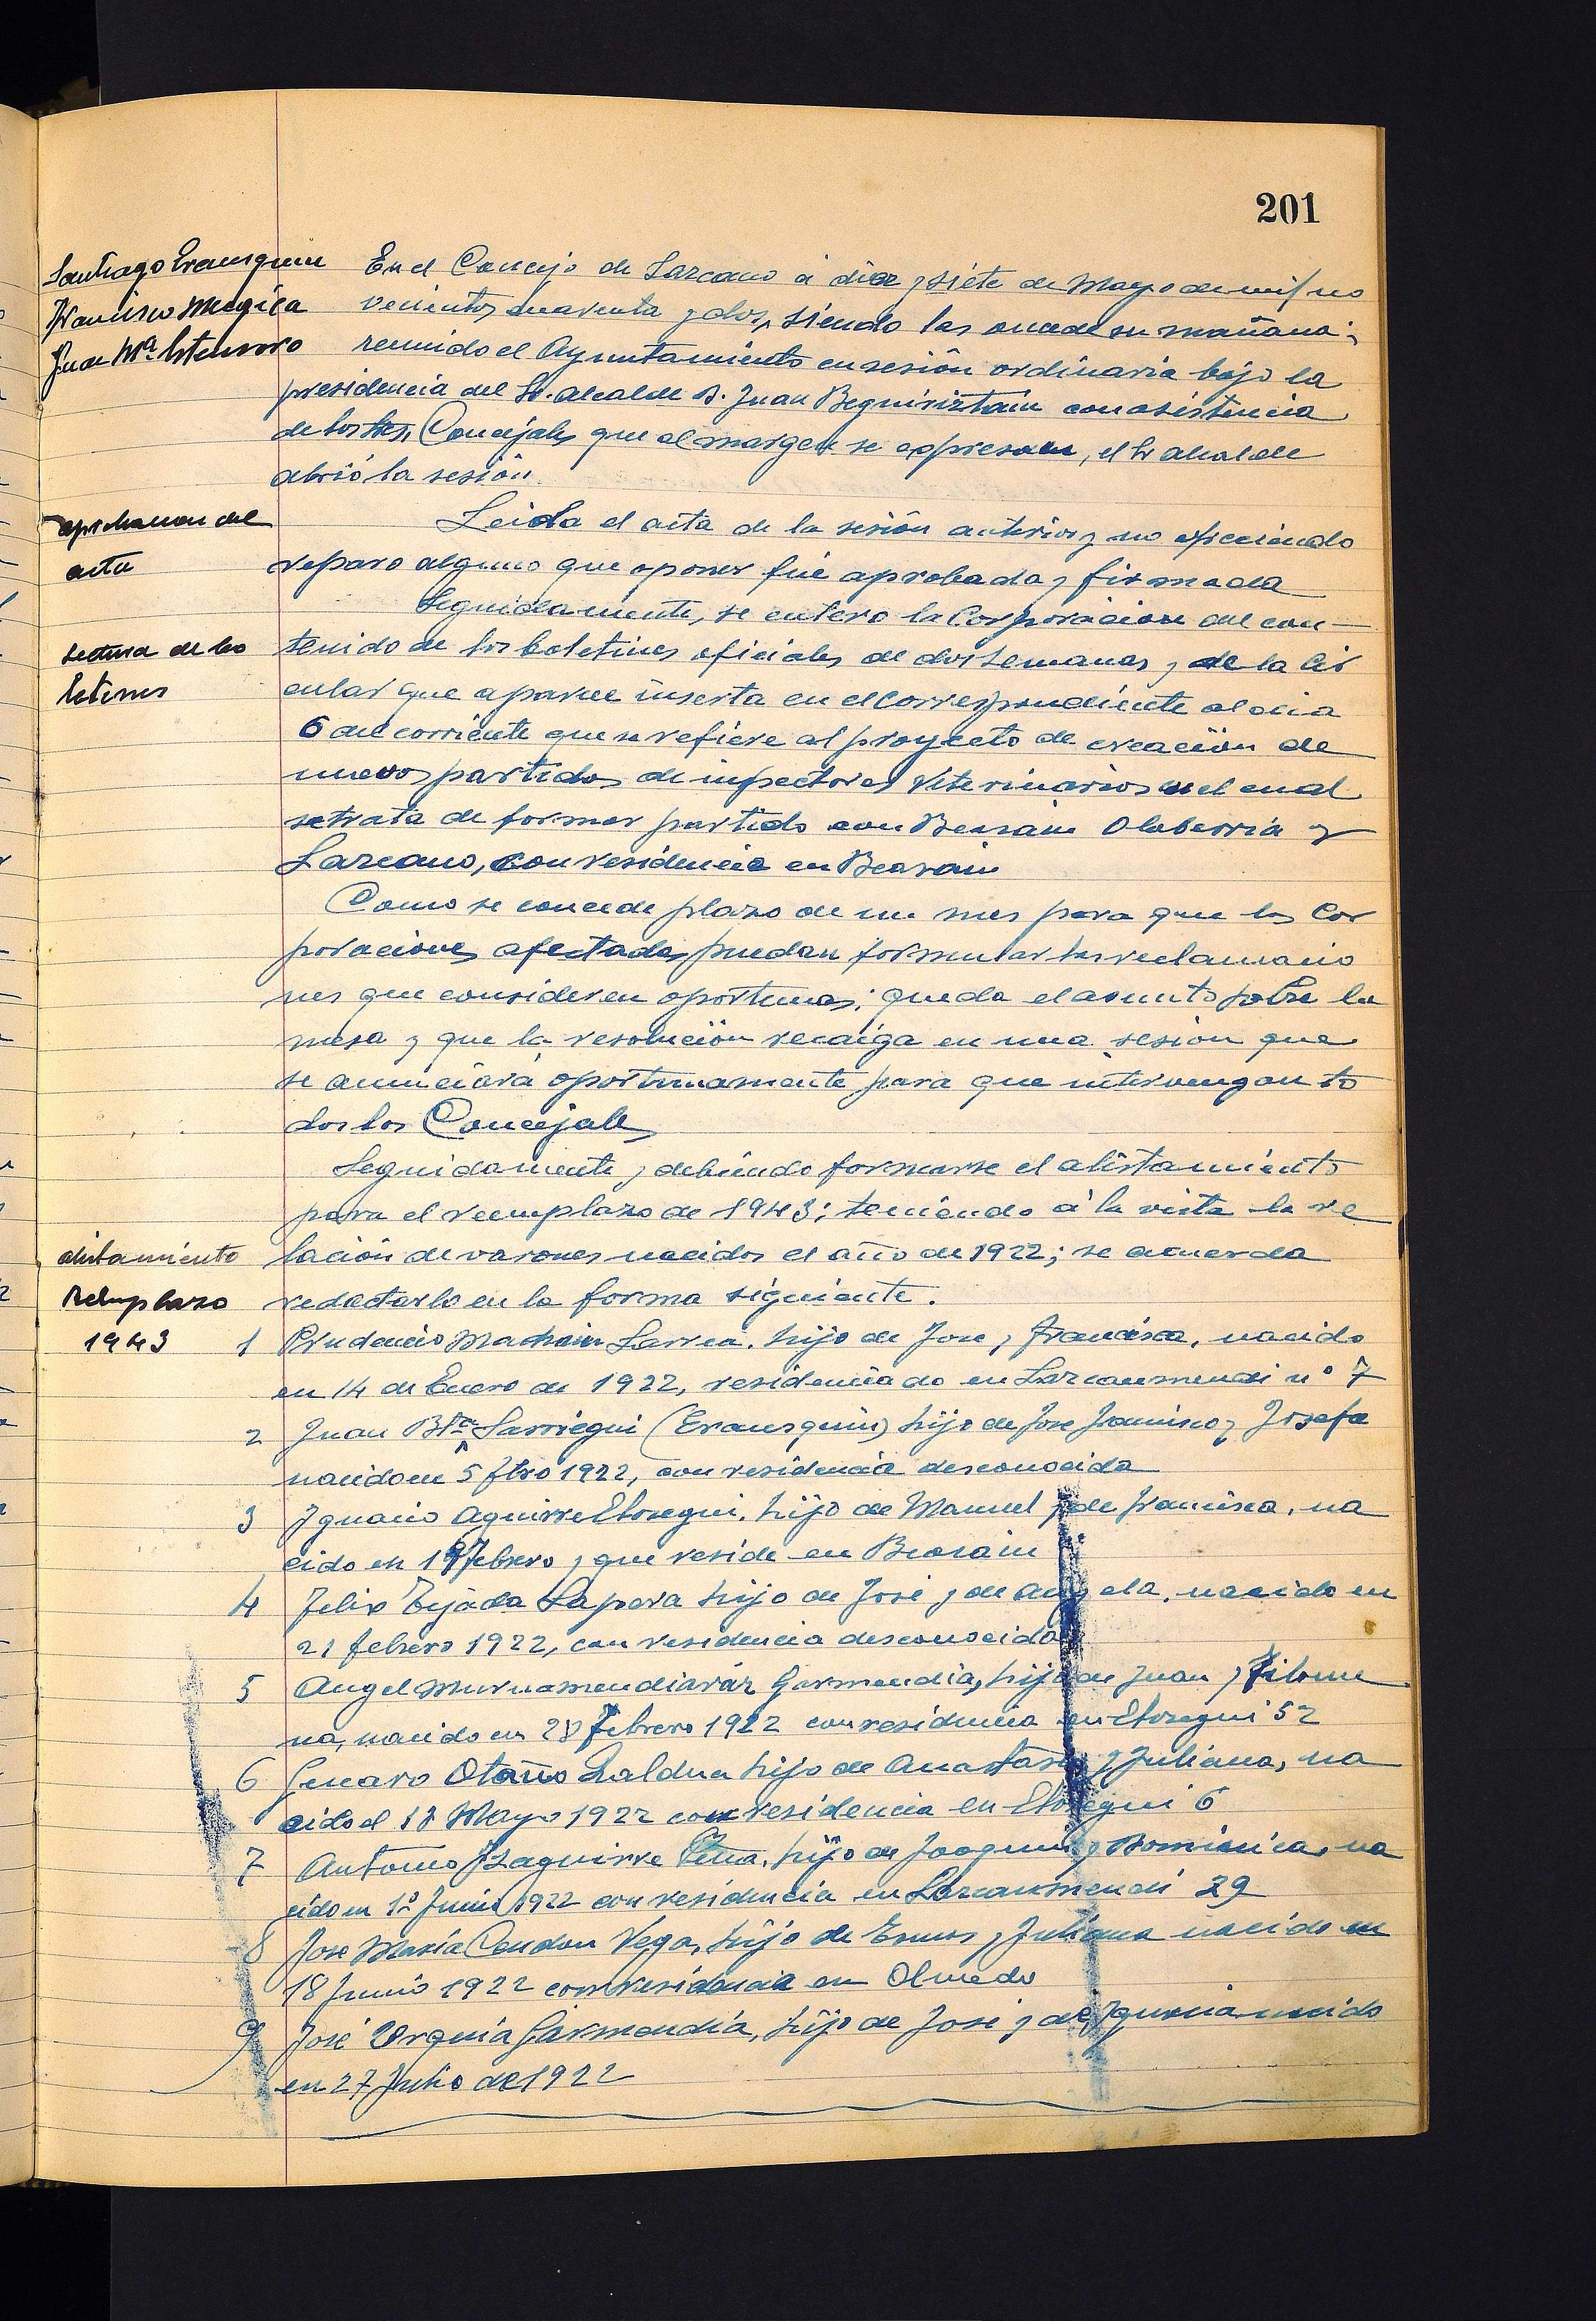 201
Santiago Erausquin
Francisco Mugica
Juan Mª Estensoro
En el Concejo de Lazcano a diez y siete de Mayo de mil no
vecientos cuarenta y dos, siendo las once de su mañana;
reunido el Ayuntamiento en sesión ordinaria bajo la
presidencia del Sr. alcalde D. Juan Beguiriztain con asistencia
de los Concejales que al margen se expresan, el Sr alcalde
abrió la sesión.
aprobacion del
acta
Leida el acta de la sesión anterior y no ofreciendo
reparo alguno que oponer fué aprobada y firmada
Seguidamente, se entero la Corporacion del con-
lectura de bo
letines
tenido de los boletines oficiales de dos semanas y de la cir
cular que aparece inserta en el correspondiente al dia
6 del corriente que se refiere al proyecto de creación de
nuevos partidos de inspectores Veterinarios en el cual
se trata de formar partido con Beasain Olaberria y
Lazcano, con residencia en Beasain
Como se concede plazo de un mes para que las Cor
poraciones afectadas puedan formular las reclamacio
nes que consideren oportunas; queda el asunto sobre la
mesa y que la resolución recaiga en una sesión que
se anunciará oportunamente para que intervengan to
dos los Concejales
Seguidamente y debiendo formarse el alistamiento
para el reemplazo de 1943; teniendo á la vista la re
alistamiento
Remplazo
1943
lación de varones nacidos el año de 1922; se acuerda
redactarlo en la forma siguiente.
1 Prudencio Machain Larrea, hijo de Jose y Francisca, nacido
en 14 de Enero de 1922, residenciado en Lazcanomendi nº 7
2 Juan Bta Sarriegui (Erausquin) hijo de Jose Francisco y Josefa
nacido en 5 fbro 1922, con residencia desconocida
3 Ignacio Aguirre Elosegui, hijo de Manuel y de francisca, na
cido en febrero y que reside en Beasain
4 Felix Tejada Lapera hijo de José y de Angela, nacido en
21 febrero 1922, con residencia desconocida
5 Angel Murnamendiaraz Garmendia, hijo de Juan y Filome
na, nacido en 28 Febrero 1922 con residencia en Elosegui 52
6 Genaro Otaño Zaldua hijo de Anastasio y Juliana, na
cido el 18 Mayo 1922 con residencia en Elosegui 6
7 Antonio Izaguirre hijo de Joaquin y Dominica, na
cido en 1º Junio 1922 con residencia en Lazcanomendi 29
8 Jose Maria Cendon Vega, hijo de y Juliana nacido en
18 Junio 1922 con residencia en Olmedo
9 José Urquia Garmendia, hijo de José y de Ignacia nacido
en 27 Julio de 1922